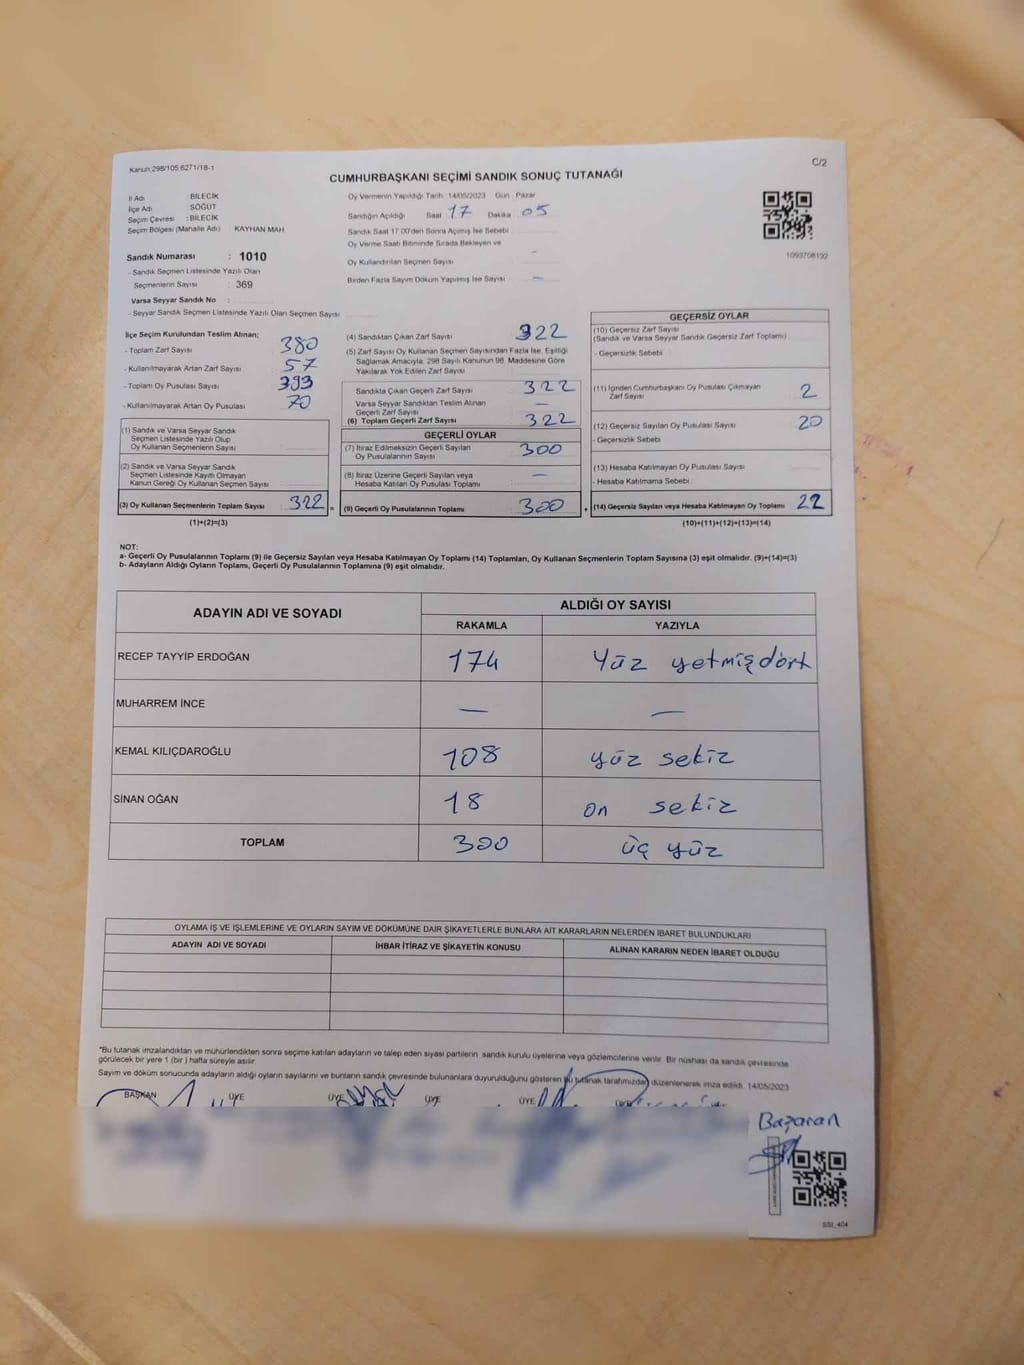 Kanun:298/105,6271/18-1
C/2
CUMHURBAŞKANI SEÇİMİ SANDIK SONUÇ TUTANAĞI
İl Adı BİLECİK
İlçe Adı SÖĞÜT
Seçim Çevresi :BİLECİK
Seçim Bölgesi (Mahalle Adı) : KAYHAN MAH
Sandık Numarası : 1010
- Sandık Seçmen Listesinde Yazılı Olan
Seçmenlerin Sayısı : 369
Varsa Seyyar Sandık No :
- Seyyar Sandık Seçmen Listesinde Yazılı Olan Seçmen Sayısı
Oy Vermenin Yapıldığı Tarih 14/05/2023 Gün Pazar
Sandığın Açıldığı Saat 17 Dakika 05
Sandık Saat 17:00'den Sonra Açmış İse Sebebi
Oy Verme Saati Bitiminde Sırada Bekleyen ve
Oy Kullandırılan Seçmen Sayısı —
Birden Fazla Sayım Döküm Yapılmış İse Sayısı —
1093708192
İlçe Seçim Kurulundan Teslim Alınan;
- Toplam Zarf Sayısı 380
- Kullanılmayarak Artan Zarf Sayısı 57
- Toplam Oy Pusulası Sayısı 393
- Kullanılmayarak Artan Oy Pusulası 70
(1) Sandık ve Varsa Seyyar Sandık
Seçmen Listesinde Yazılı Olup
Oy Kullanan Seçmenlerin Sayısı
(2) Sandık ve Varsa Seyyar Sandık
Seçmen Listesinde Kayıtlı Olmayan
Kanun Gereği Oy Kullanan Seçmen Sayısı
(3) Oy Kullanan Seçmenlerin Toplam Sayısı 322 =
(1)+(2)=(3)
(4) Sandıktan Çıkan Zarf Sayısı 322
(5) Zarf Sayısı Oy Kullanan Seçmen Sayısından Fazla İse, Eşitliği
Sağlamak Amacıyla, 298 Sayılı Kanunun 98. Maddesine Göre
Yakılarak Yok Edilen Zarf Sayısı
Sandıkta Çıkan Geçerli Zarf Sayısı 322
Varsa Seyyar Sandıktan Teslim Alınan
Geçerli Zarf Sayısı —
(6) Toplam Geçerli Zarf Sayısı 322
GEÇERLİ OYLAR
(7) İtiraz Edilmeksizin Geçerli Sayılan
Oy Pusulalarının Sayısı 300
(8) İtiraz Üzerine Geçerli Sayılan veya
Hesaba Katılan Oy Pusulası Toplamı —
(9) Geçerli Oy Pusulalarının Toplamı 300 +
GEÇERSİZ OYLAR
(10) Geçersiz Zarf Sayısı
(Sandık ve Varsa Seyyar Sandık Geçersiz Zarf Toplamı)
- Geçersizlik Sebebi
(11) İçinden Cumhurbaşkanı Oy Pusulası Çıkmayan
Zarf Sayısı 2
(12) Geçersiz Sayılan Oy Pusulası Sayısı 20
- Geçersizlik Sebebi
(13) Hesaba Katılmayan Oy Pusulası Sayısı
- Hesaba Katılmama Sebebi
(14) Geçersiz Sayılan veya Hesaba Katılmayan Oy Toplamı 22
(10)+(11)+(12)+(13)=(14)
NOT:
a- Geçerli Oy Pusulalarının Toplamı (9) ile Geçersiz Sayılan veya Hesaba Katılmayan Oy Toplamı (14) Toplamları, Oy Kullanan Seçmenlerin Toplam Sayısına (3) eşit olmalıdır. (9)+(14)=(3)
b- Adayların Aldığı Oyların Toplamı, Geçerli Oy Pusulalarının Toplamına (9) eşit olmalıdır.
ADAYIN ADI VE SOYADI ALDIĞI OY SAYISI
RAKAMLA YAZIYLA
RECEP TAYYİP ERDOĞAN 174 Yüz yetmişdört
MUHARREM İNCE — —
KEMAL KILIÇDAROĞLU 108 yüz sekiz
SİNAN OĞAN 18 on sekiz
TOPLAM 300 üç yüz
OYLAMA İŞ VE İŞLEMLERİNE VE OYLARIN SAYIM VE DÖKÜMÜNE DAİR ŞİKAYETLERLE BUNLARA AİT KARARLARIN NELERDEN İBARET BULUNDUKLARI
ADAYIN ADI VE SOYADI İHBAR İTİRAZ VE ŞİKAYETİN KONUSU ALINAN KARARIN NEDEN İBARET OLDUĞU
"Bu tutanak imzalandıktan ve mühürlendikten sonra seçime katılan adayların ve talep eden siyasi partilerin sandık kurulu üyelerine veya gözlemcilerine verilir. Bir nüshası da sandık çevresinde
görülecek bir yere 1 (bir) hafta süreyle asılır.
Sayım ve döküm sonucunda adayların aldığı oyların sayılarını ve bunların sandık çevresinde bulunanlara duyurulduğunu gösteren bu tutanak tarafımızdan düzenlenerek imza edildi. 14/05/2023
BAŞKAN ÜYE ÜYE ÜYE ÜYE ÜYE
Başaran
SSI_404